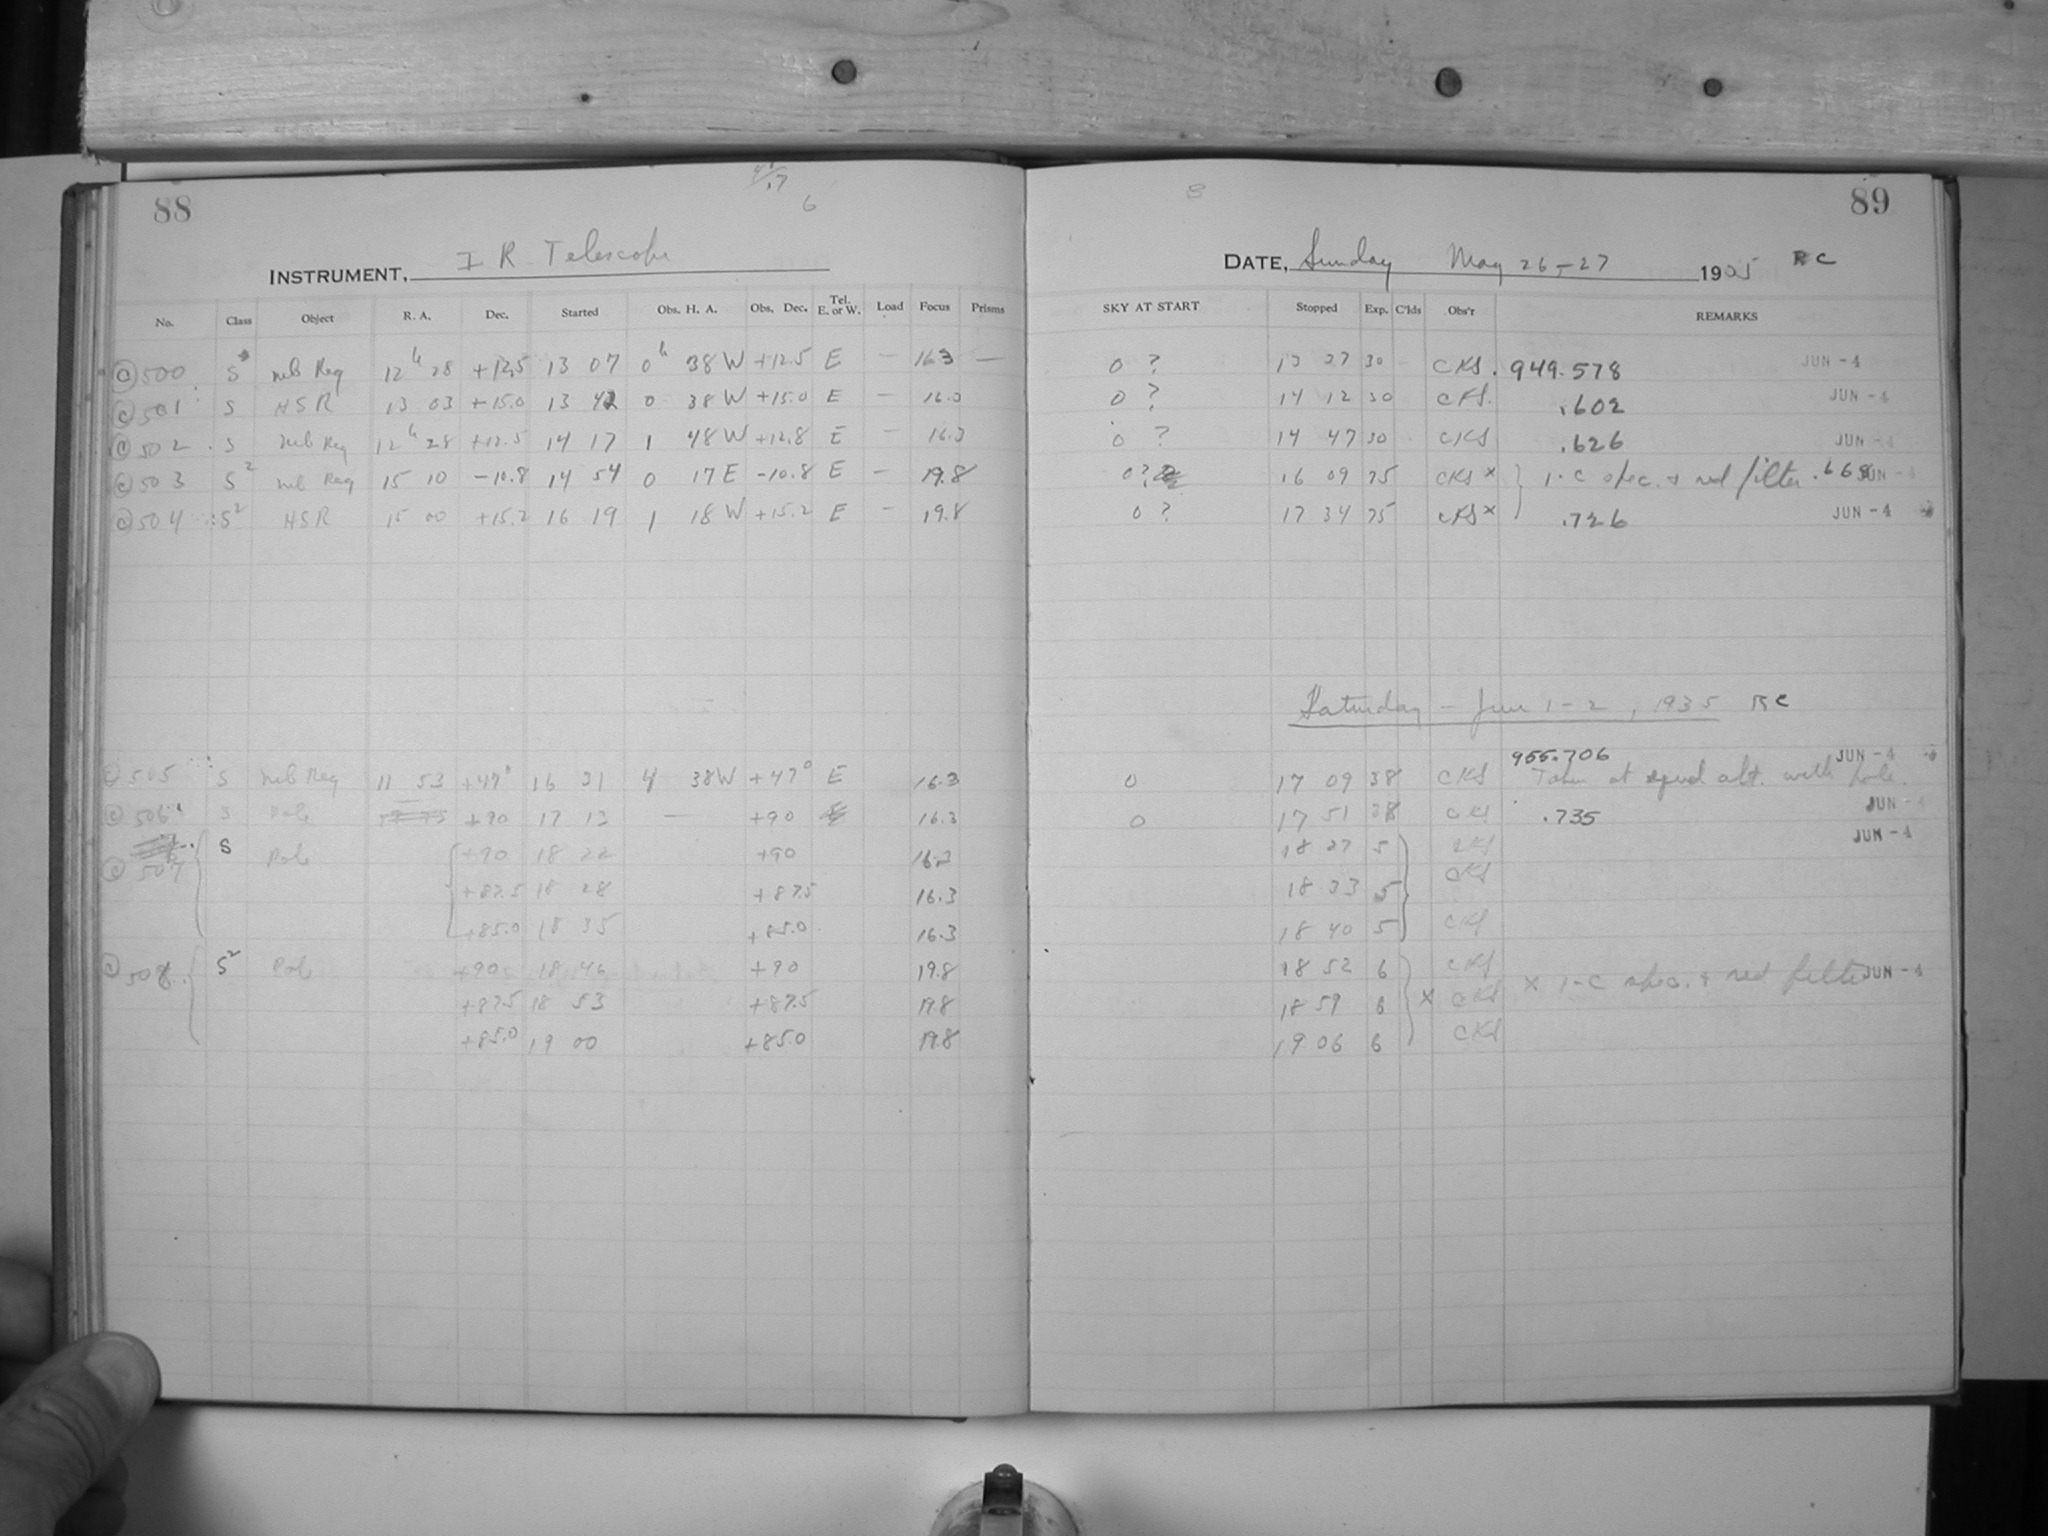 88
6
INSTRUMENT, I R Telescope
No. Class Object R. A. Dec. Started Obs. H. A. Obs. Dec. Tel. E. or W. Load Focus Prisms
500 S 12h 28 +12.5 13 07 0h 38 W +12.5 E — 16.3 —
501 S HSR 13 03 +15.0 13 42 0 38 W +15.0 E — 16.3
502 S 12h 28 +12.5 14 17 1 48 W +12.8 E — 16.3
503 S2 15 10 -10.8 14 54 0 17 E -10.8 E — 19.8
504 S2 HSR 15 00 +15.2 16 19 1 18 W +15.2 E — 19.8
505 S 11 53 +47° 16 31 4 38 W +47° E 16.3
506 S Pole +90 17 13 — +90 16.3
507 S Pole +90 18 22 +90 16.3
+87.5 18 28 +87.5 16.3
+85.0 18 35 +85.0 16.3
508 S2 Pole +90 18 46 +90 19.8
+87.5 18 53 +87.5 19.8
+85.0 19 00 +85.0 19.8
89
DATE, Sunday May 26-27 1935 RC
SKY AT START Stopped Exp. C'lds Obs'r REMARKS
0 ? 13 37 30 CKS. 949.578 JUN -4
0 ? 14 12 30 CKS. .602 JUN -4
0 ? 14 47 30 CKS .626 JUN -4
0 ? 16 09 75 CKS x 1-C spec. + red filter .668 JUN -4
0 ? 17 34 75 CKS x .726 JUN -4
Saturday - June 1-2, 1935 RC
955.706 JUN -4
0 17 09 38 CKS Taken at equal alt. with pole.
0 17 51 38 CKS .735 JUN -4
18 27 5 CKS JUN -4
18 33 5 CKS
18 40 5 CKS
18 52 6 CKS x 1-C spec. + red filter JUN -4
18 59 6 x CKS
19 06 6 CKS